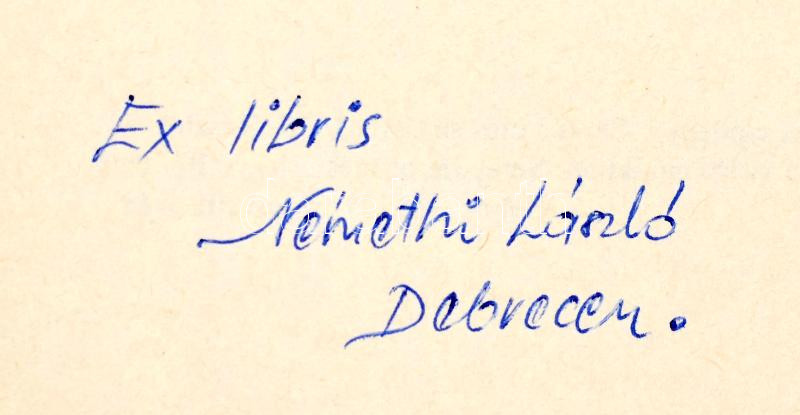 Ex libris
Némethi László
Debrecen.